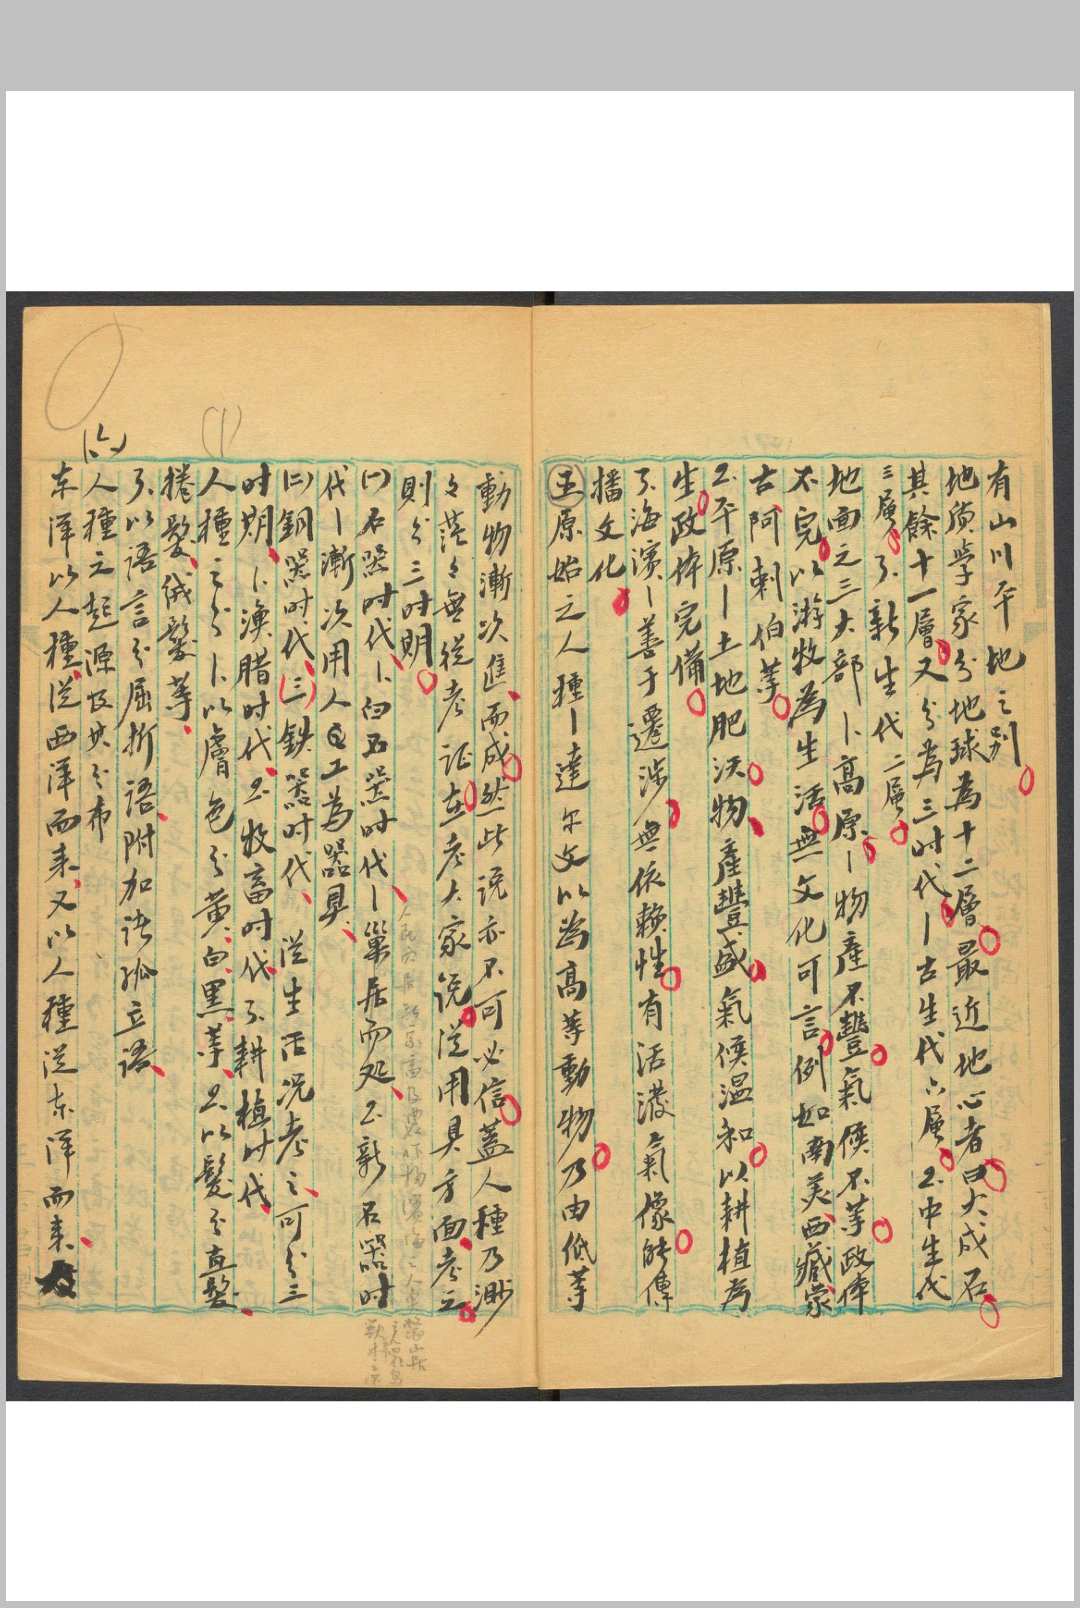 有山川平地之別
地質學家分地球為十二層最近地心者曰大成石
其餘十一層又分為三时代一古生代六層2.中生代
三層3.新生代二層
地面之三大部1.高原一物產不豐氣候不等政体
不完以游牧為生活無文化可言例如南美西藏蒙
古阿剌伯等
2.平原一土地肥沃物產豐盛氣候温和以耕植為
生政体完備
3.海濱一善于遷涉無依賴性有活潑氣像能傳
播文化
五原始之人種一達尔文以為高等動物乃由低等
動物漸次進而成然此説亦不可必信蓋人種乃渺
々茫々無從考证在考大家説從用具方面考之
則分三时期
(一)石器时代1.旧石器时代一巢居而処2.新石器时
代一漸次用人工為器具
(二)銅器时代(三)鉄器时代、從生活况考之可分三
时期1.漁腊时代2.牧畜时代3.耕植时代
人種之分1.以膚色分黄白黑等2.以髮分直髮
捲髮絨髮等
3.以語言分屈折語附加語孤立語
(六)
人種之起源及其分布
东洋以人種從西洋而来又以人種從东洋而来
(1)